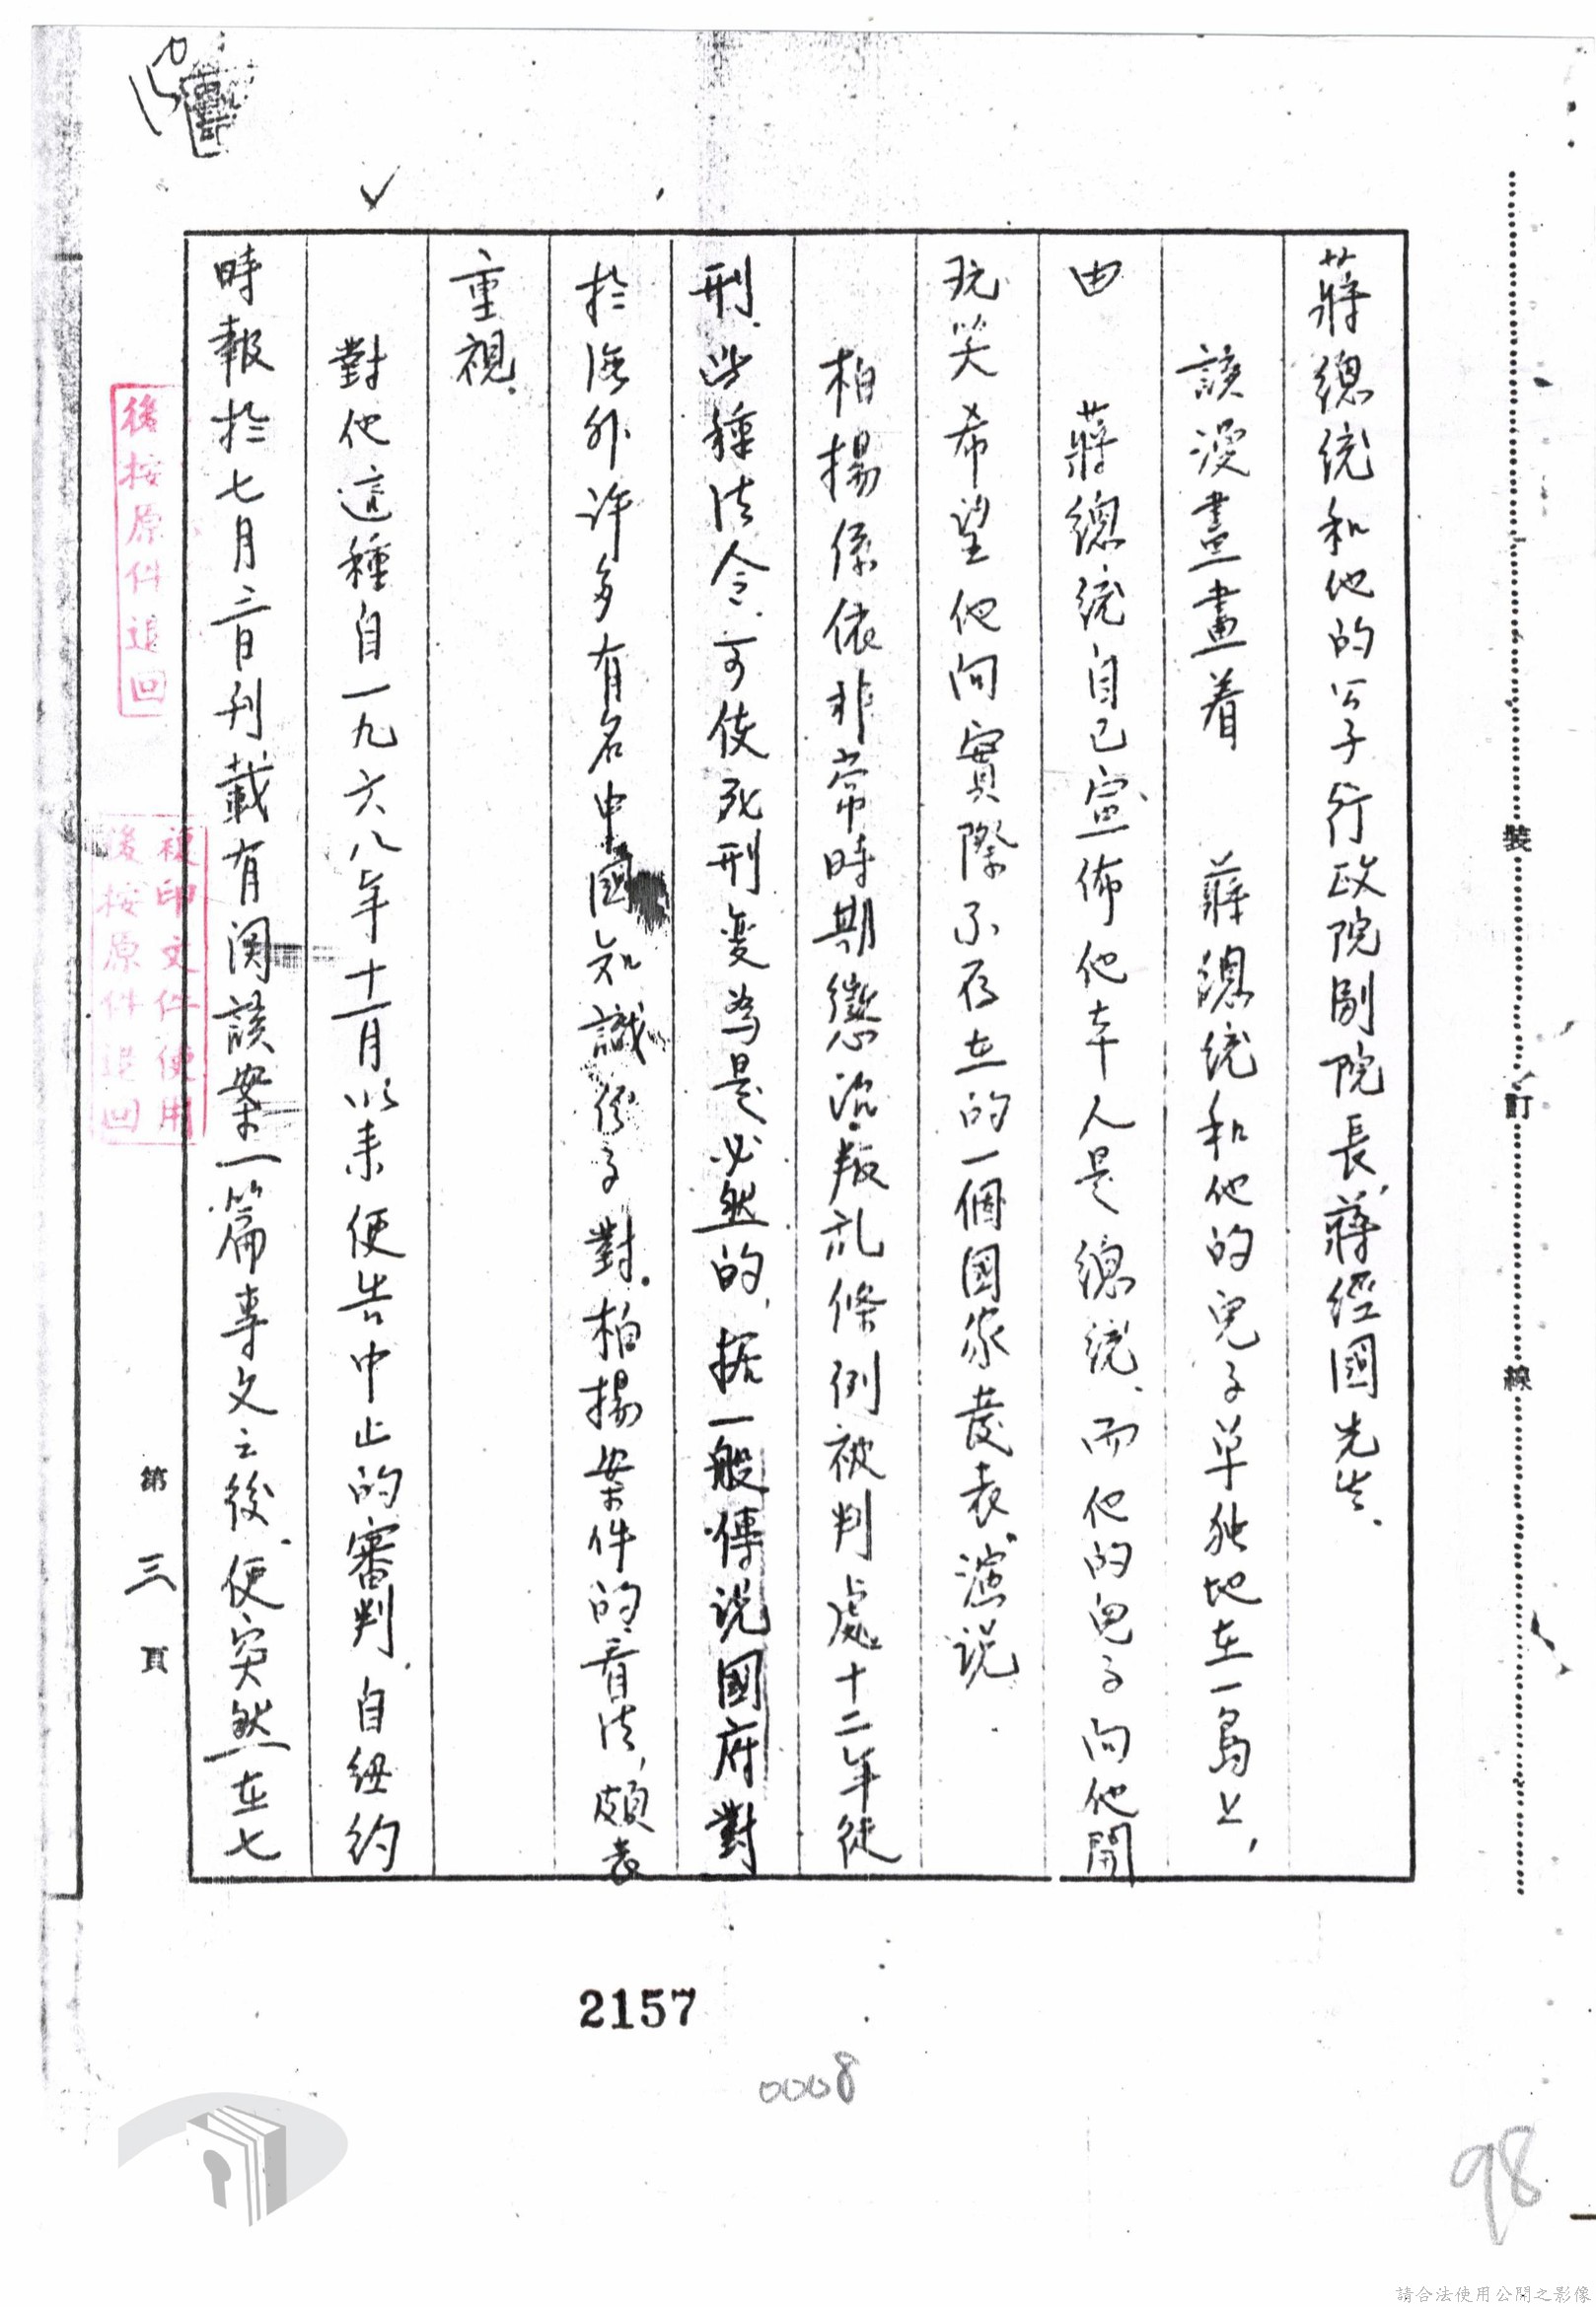 蔣總統和他的公子行政院副院長蔣經國先生.
該漫畫畫着　蔣總統和他的兒子单独地在一島上,
由　蔣總統自己宣佈他本人是總統、而他的兒子向他開
玩笑希望他向實際不存在的一個国家發表演说.
柏揚係依非常時期懲治叛乱條例被判處十二年徒
刑、此種法令、可使死刑变為是必然的,据一般傳说國府對
於海外许多有名中國知識份子對柏揚案件的看法,頗表
重視.
對他這種自一九六八年十一月以来便告中止的審判、自纽约
時報於七月三日刋載有関該案一篇專文之後、便突然在七
第三頁
裝
訂
線
後按原件退回
複印文件使用
後按原件退回
2157
0008
98
請合法使用公開之影像